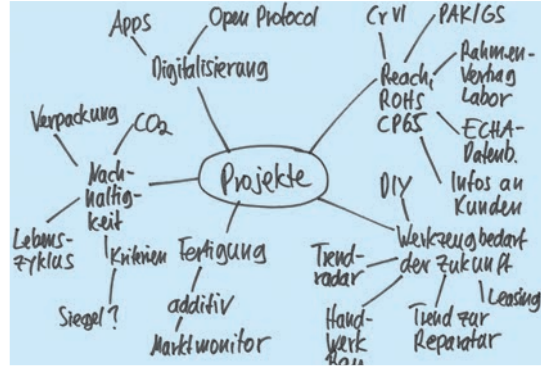 Apps
Open Protocol
Digitalisierung
CrVI
PAK/GS
Reach,
ROHs
CP65
Rahmen-
Vertrag
Labor
ECHA-
Datenb.
Infos an
Kunden
Verpackung
CO2
Nach-
haltig-
keit
Lebens-
zyklus
Kriterien
Siegel?
Projekte
Fertigung
additiv
Marktmonitor
DIY
Werkzeugbedarf
der Zukunft
Trend-
radar
Hand-
werk
Bau
Trend zur
Reparatur
Leasing